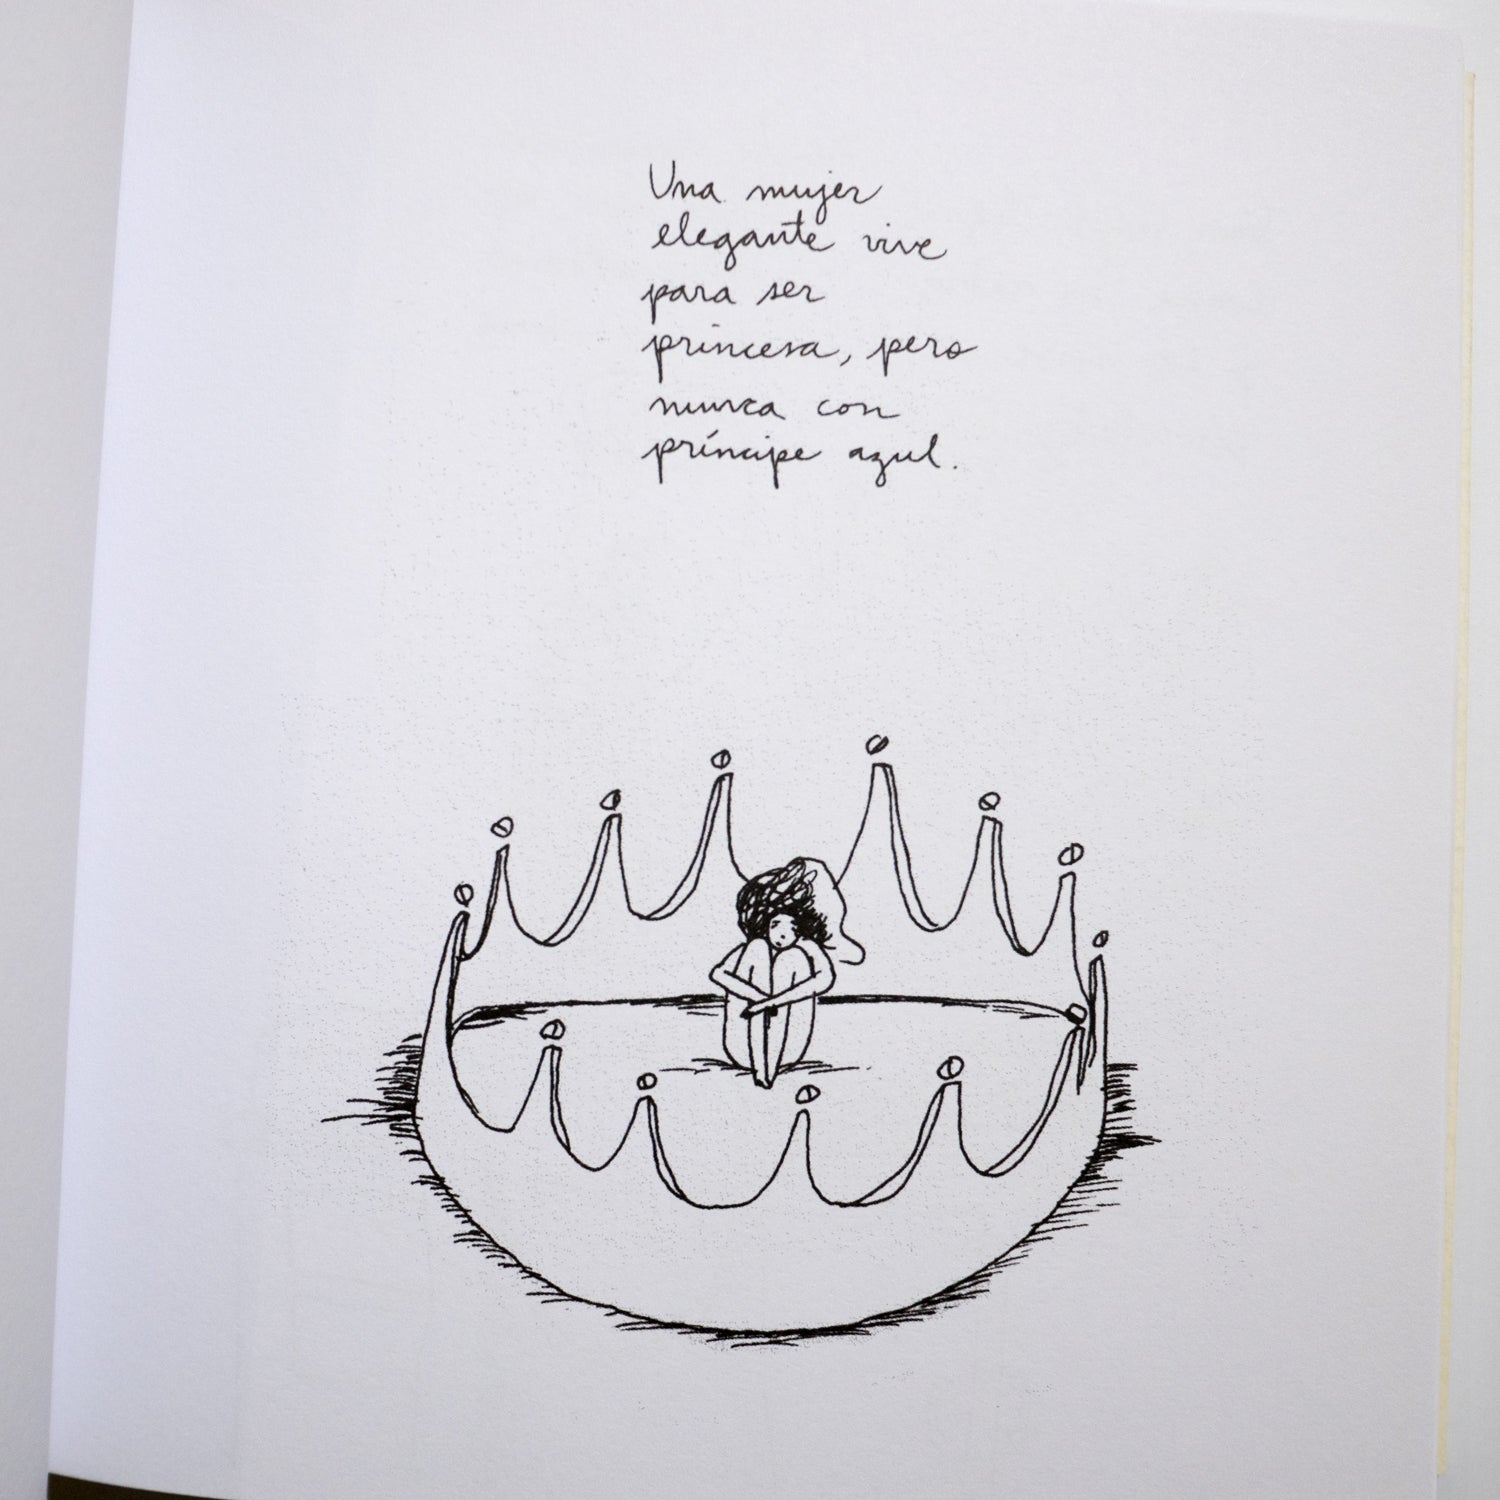 Una mujer
elegante vive
para ser
princesa, pero
nunca con
príncipe azul.